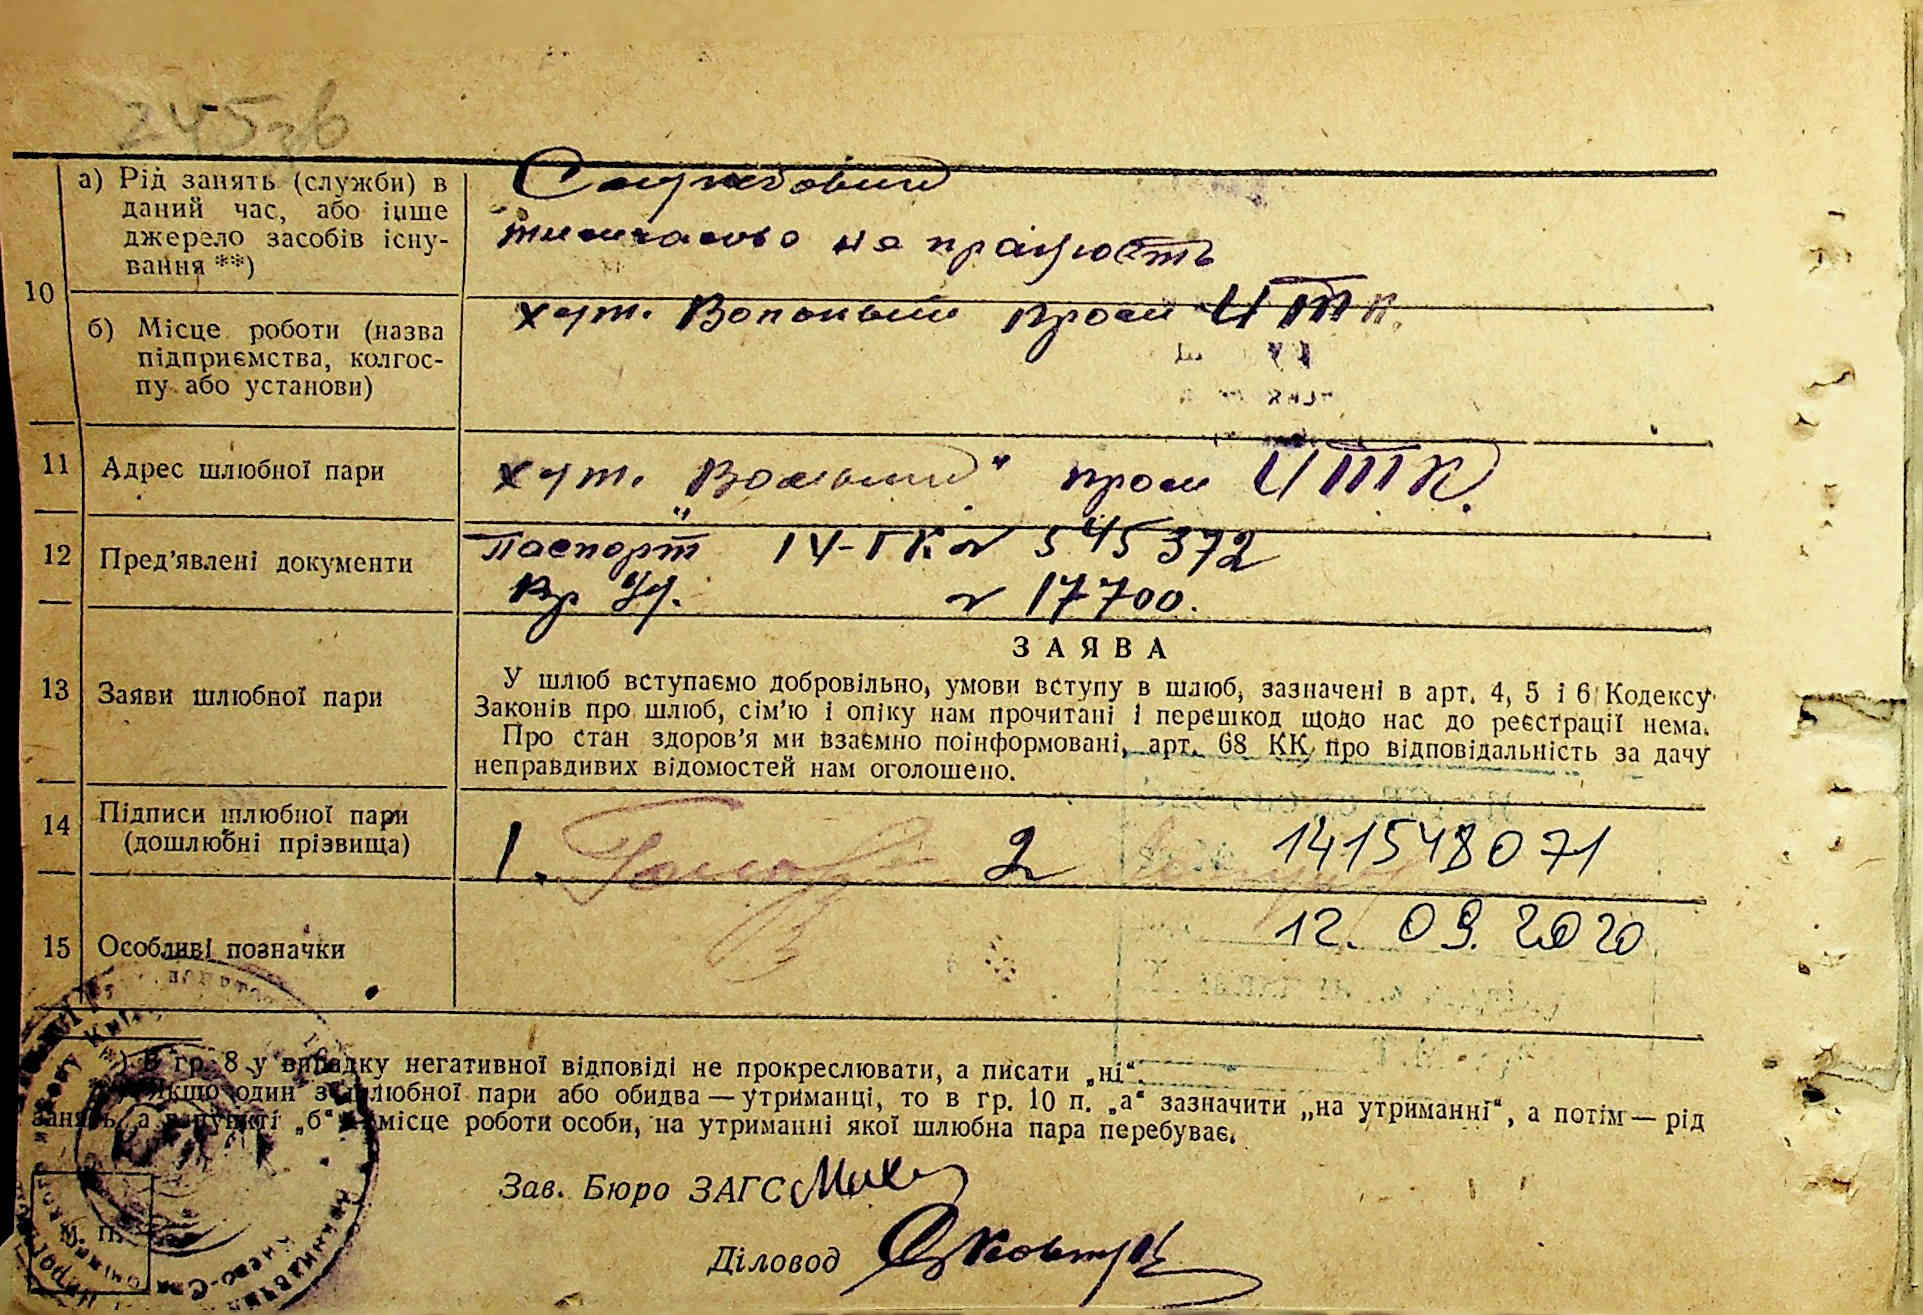 245зв
а) Рід занять (служби) в
даний час, або інше
джерело засобів існу-
вання **)
Службовий
тимчасово не працюєть
10
б) Місце роботи (назва
підприємства, колгос-
пу або установи)
хут. Вольный пром ЦТК.
11 Адрес шлюбної пари
хут. „Вольный" пром ЦТК.
12 Пред'явлені документи
Паспорт IV-ГК № 545372
№ 17700.
13 Заяви шлюбної пари
ЗАЯВА
У шлюб вступаємо добровільно, умови вступу в шлюб, зазначені в арт. 4, 5 і 6 Кодексу
Законів про шлюб, сім'ю і опіку нам прочитані і перешкод щодо нас до реєстрації нема.
Про стан здоров'я ми взаємно поінформовані, арт. 68 КК про відповідальність за дачу
неправдивих відомостей нам оголошено.
14 Підписи шлюбної пари
(дошлюбні прізвища)
1. 2 141548071
15 Особливі позначки
12. 09. 2020
*) В гр. 8 у випадку негативної відповіді не прокреслювати, а писати „ні".
Якщо один з шлюбної пари або обидва — утриманці, то в гр. 10 п. „а" зазначити „на утриманні", а потім — рід
занять, а в пункті „б" — місце роботи особи, на утриманні якої шлюбна пара перебуває.
Зав. Бюро ЗАГС
Діловод
М. П.